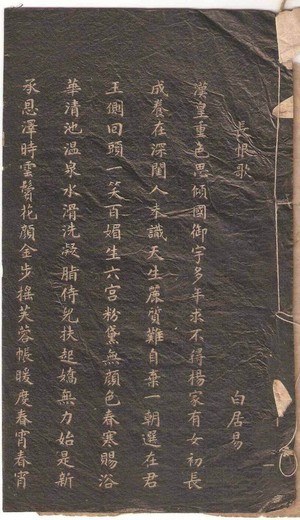 長恨歌
白居易
漢皇重色思傾國御宇多年求不得楊家有女初長
成養在深閨人未識天生麗質難自棄一朝選在君
王側回頭一笑百媚生六宮粉黛無顏色春寒賜浴
華清池温泉水滑洗凝脂侍兒扶起嬌無力始是新
承恩澤時雲鬢花顏金步搖芙蓉帳暖度春宵春宵